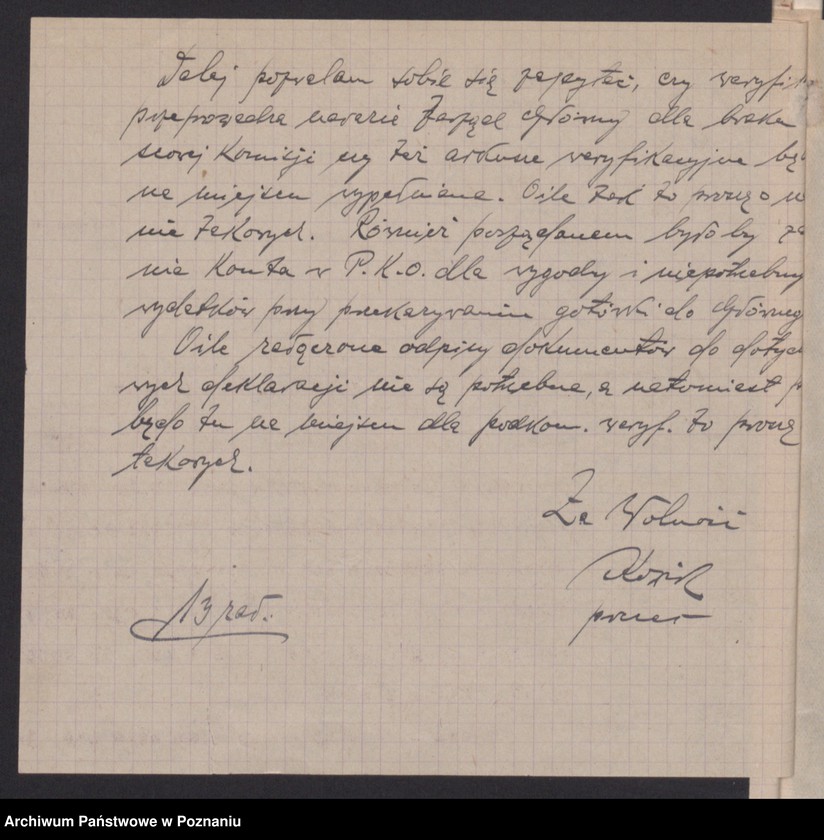 Dalej pozwalam sobie się zapytać, czy weryfik
przeprowadza narazie Zarząd Główny dla braku
scowej Komisji czy też arkusze weryfikacyjne bę
na miejscu wypełniane. Oile tak to proszę o
nie takowych. Również pożądanem byłoby za
nie Konta w P.K.O. dla wygody i niepotrzebny
wydatków przy przekazywaniu gotówki do Główneg
Oile załączone odpisy dokumentów do dotych
wych deklaracji nie są potrzebne, a natomiast p
będą tu na miejscu dla podkom. weryf. to proszę
takowych.
Za Wolność
prezes
13 zał.
Archiwum Państwowe w Poznaniu